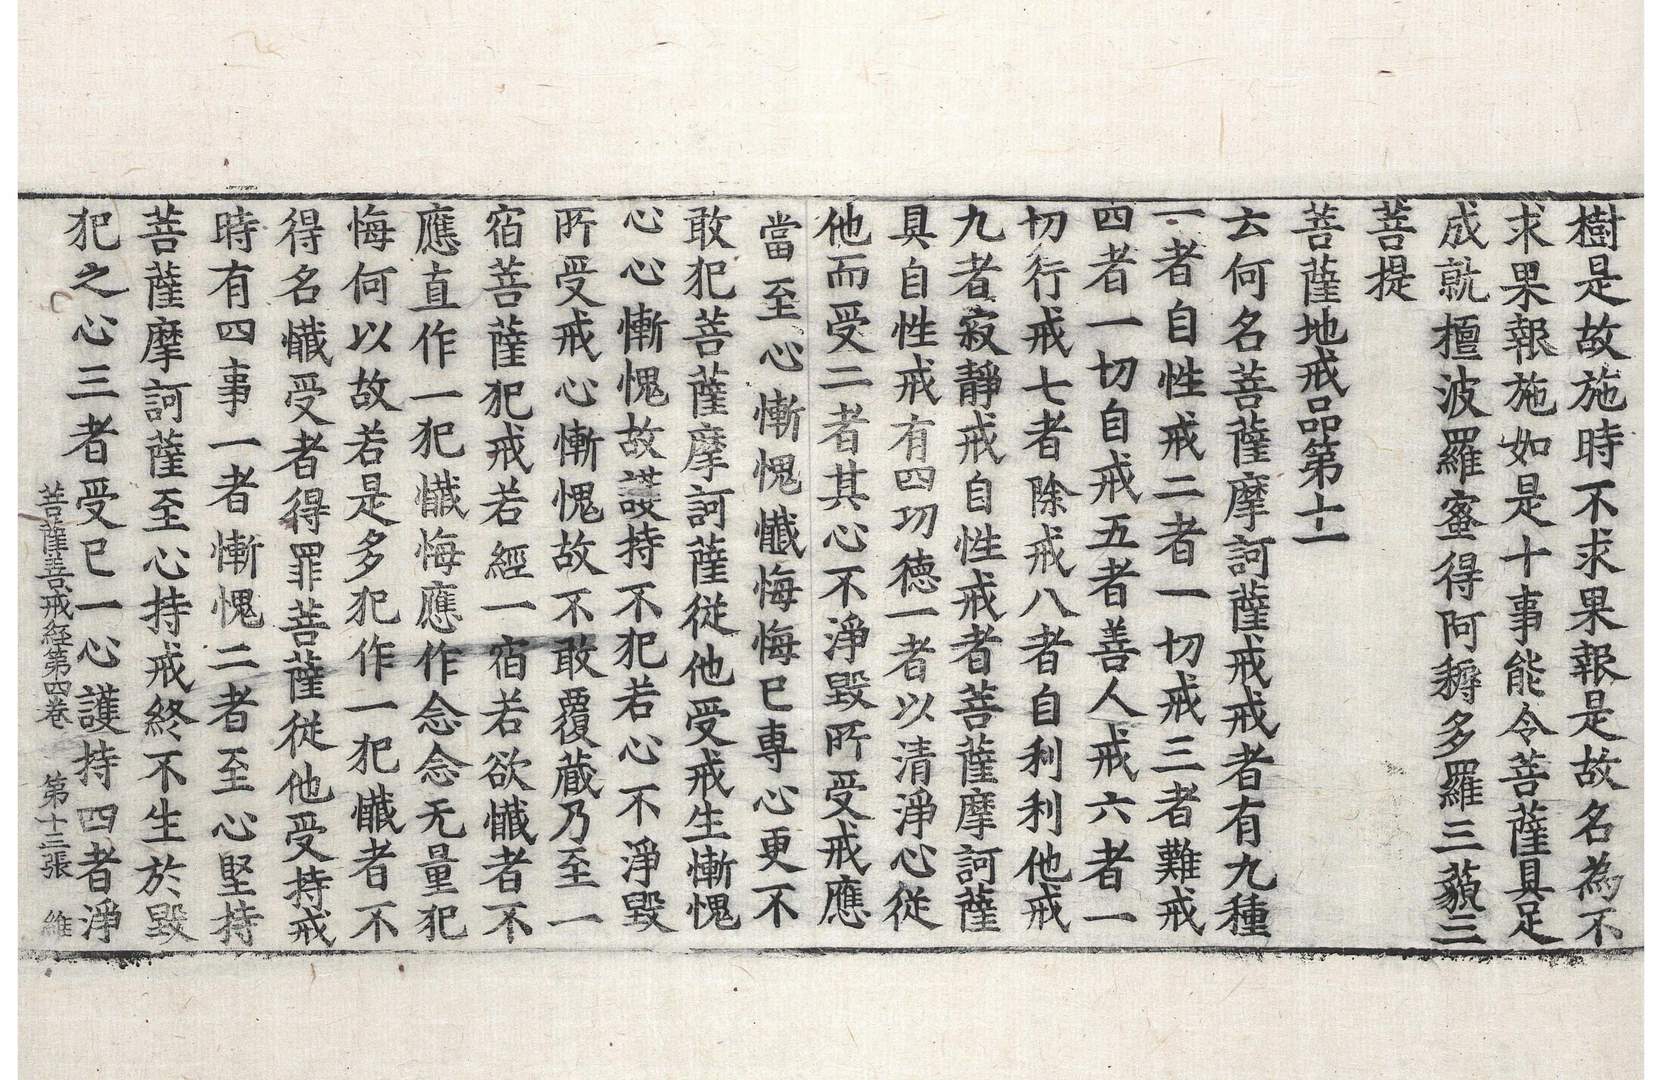 樹是故施時不求果報是故名為不
求果報施如是十事能令菩薩具足
成就檀波羅蜜得阿耨多羅三藐三
菩提
菩薩地戒品第十一
云何名菩薩摩訶薩戒戒者有九種
一者自性戒二者一切戒三者難戒
四者一切自戒五者善人戒六者一
切行戒七者除戒八者自利利他戒
九者寂靜戒自性戒者菩薩摩訶薩
具自性戒有四功德一者以清淨心従
他而受二者其心不淨毀所受戒應
當至心慚愧懺悔悔已專心更不
敢犯菩薩摩訶薩従他受戒生慚愧
心心慚愧故護持不犯若心不淨毀
所受戒心慚愧故不敢覆藏乃至一
宿菩薩犯戒若經一宿若欲懺者不
應直作一犯懺悔應作念念无量犯
悔何以故若是多犯作一犯懺者不
得名懺受者得罪菩薩従他受持戒
時有四事一者慚愧二者至心堅持
菩薩摩訶薩至心持戒終不生於毀
犯之心三者受已一心護持四者淨
菩薩善戒經第四卷 第十三張 維